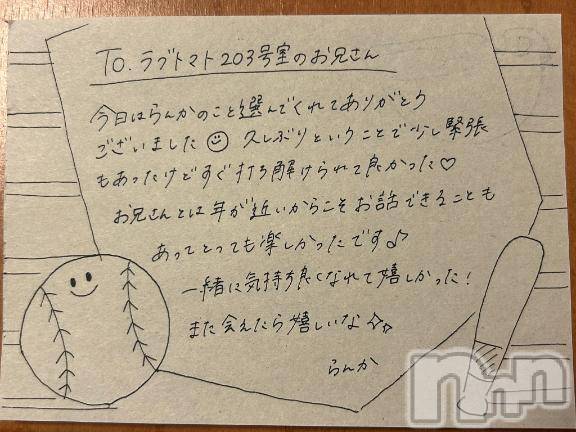 To. ラブトマト203号室のお兄さん
今日はらんかのこと選んでくれてありがとう
ございました 久しぶりということで少し緊張
もあったけどすぐ打ち解けられて良かった♡
お兄さんとは年が近いからこそお話できることも
あってとっても楽しかったです♪
一緒に気持ち良くなれて嬉しかった!
また会えたら嬉しいな☆☆
らんか